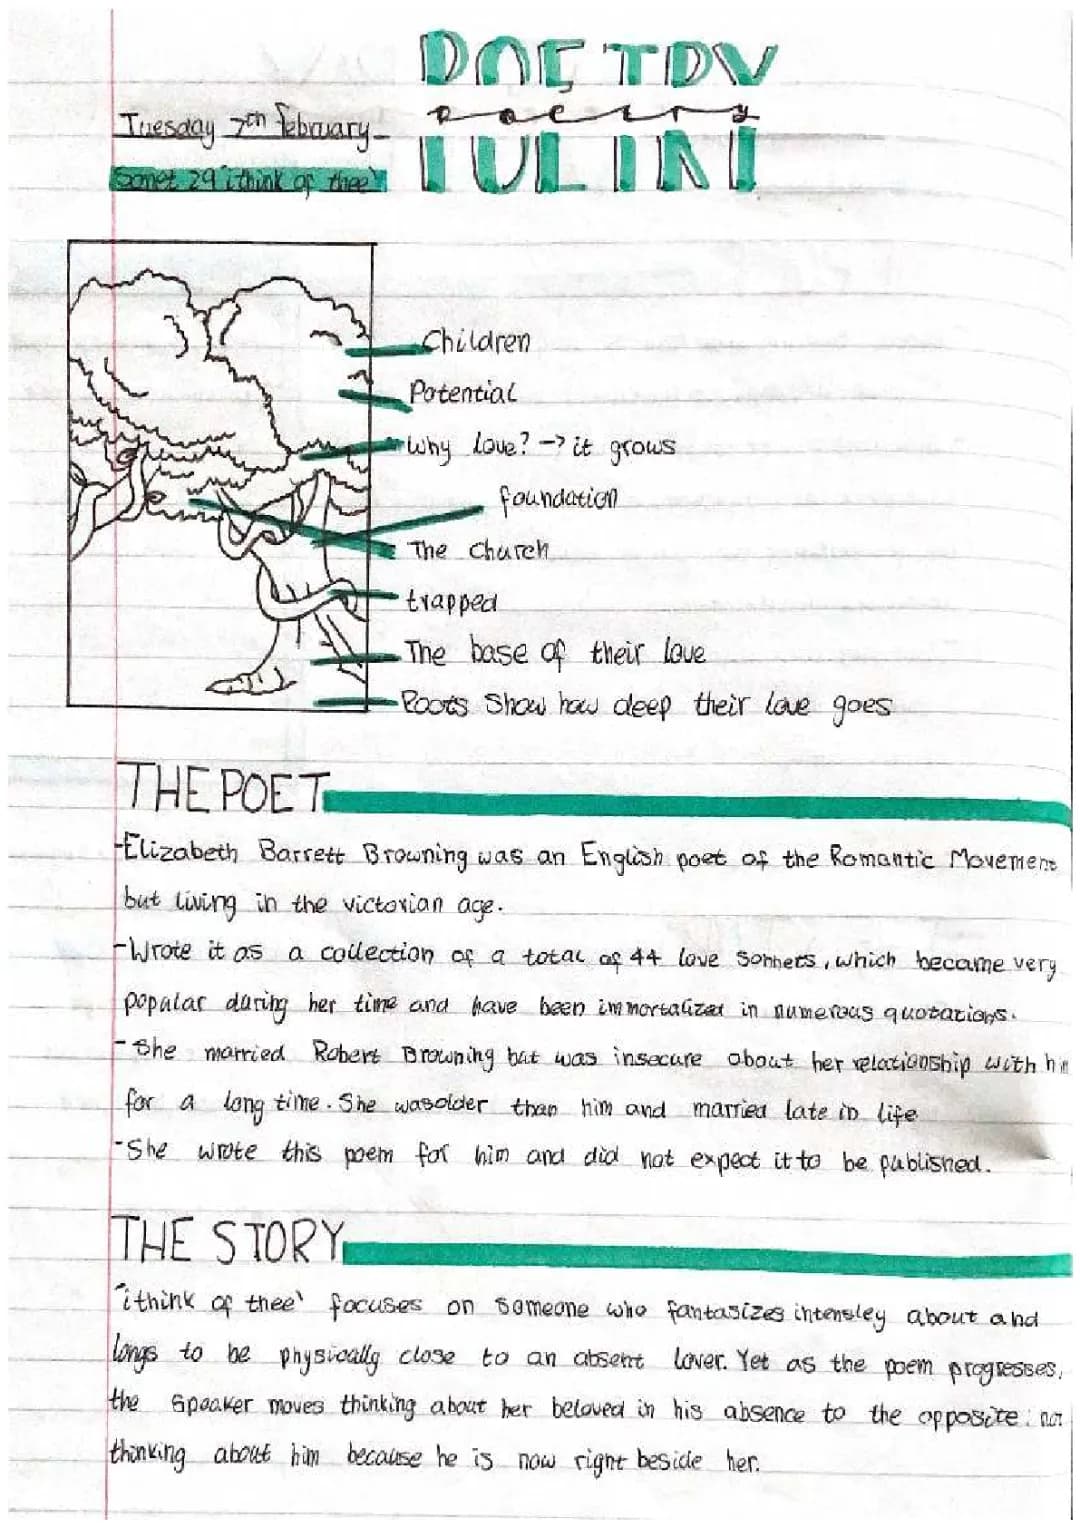 POETRY
poetry
Tuesday 7th February
Sonet 29 'ithink of thee'
Children
Potential
Why love? -> it grows
foundation
The church
trapped
The base of their love
Roots Show how deep their love goes
THE POET
-Elizabeth Barrett Browning was an English poet of the Romantic Movement
but living in the victorian age.
-Wrote it as a collection of a total of 44 love sonnets, which became very
popular during her time and have been immortalized in numerous quotations.
-She married Robert Browning but was insecure about her relationship with him
for a long time. She was older than him and married late in life
-She wrote this poem for him and did not expect it to be published.
THE STORY
'ithink of thee' focuses on someone who fantasizes intensley about and
longs to be physically close to an absent lover. Yet as the poem progresses,
the speaker moves thinking about her beloved in his absence to the opposite: not
thinking about him because he is now right beside her.